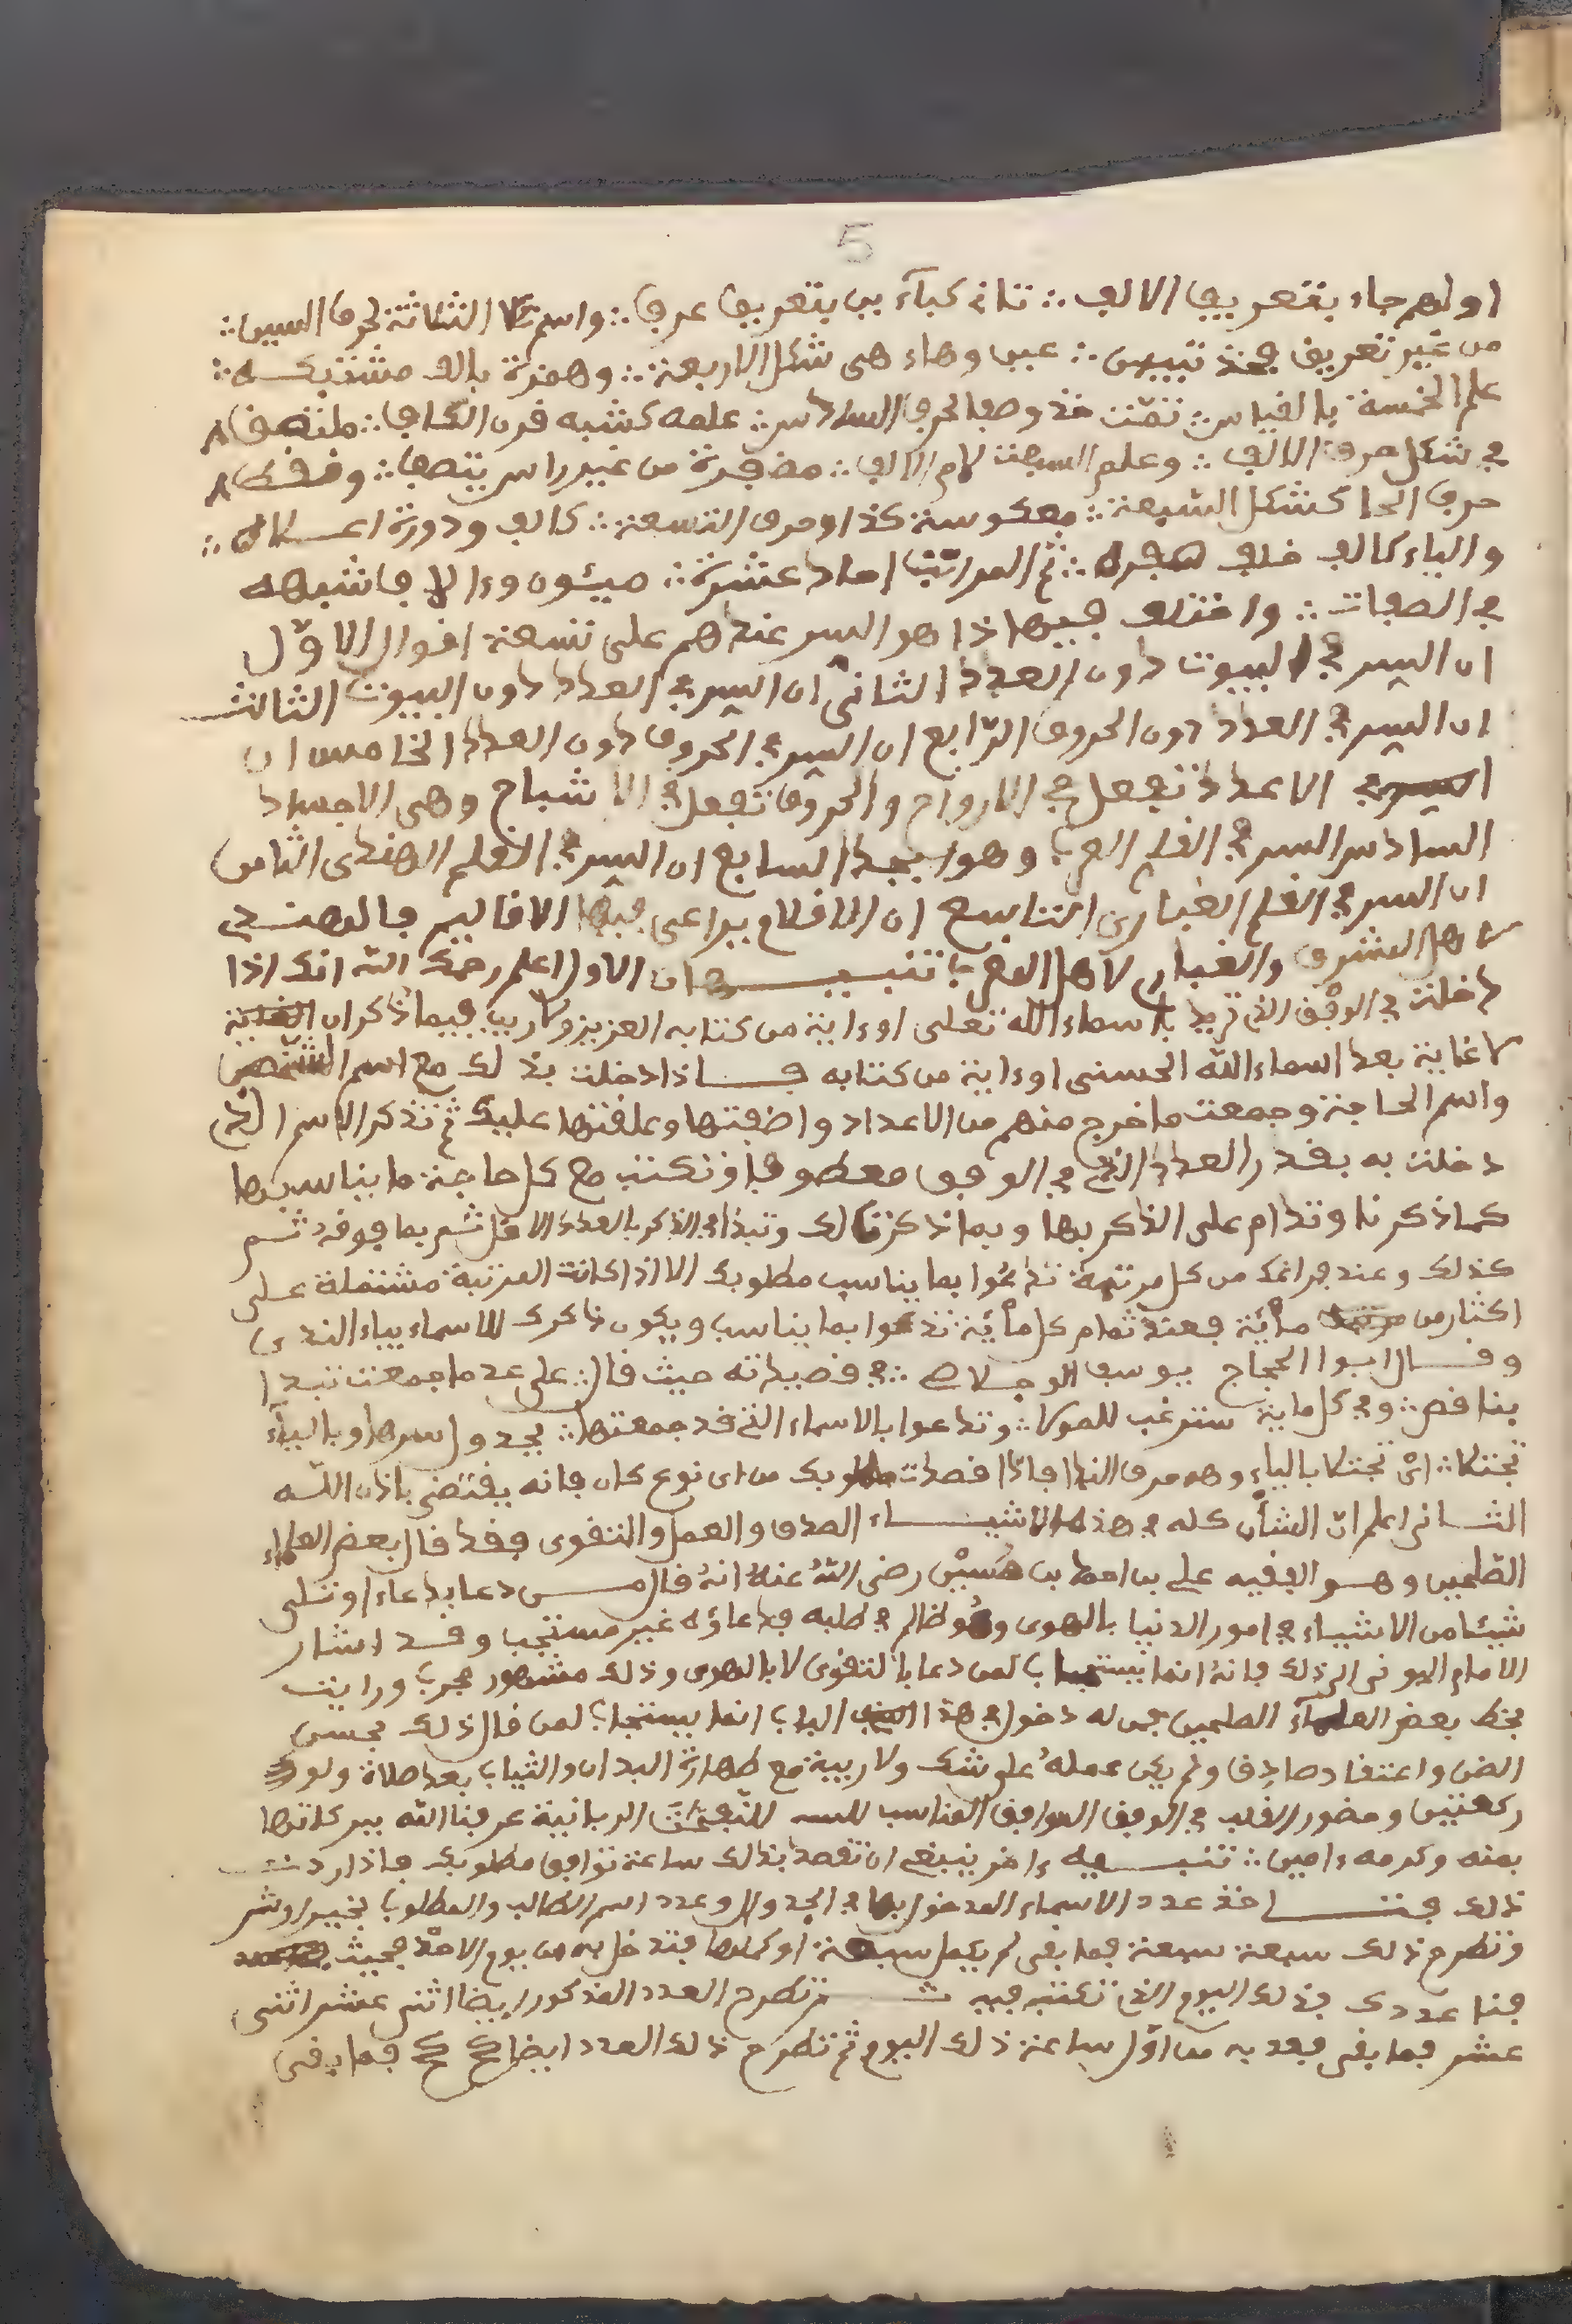 5
اولهم جاء بتعريف الالف ∴ تاني كباء بين بتعريف عرف ∴ واسم الثلاثة لحرف السين ∴
من غير تعريف فخذ تبيين ∴ عين وهاء هي شكل الاربعة ∴ وهمزة بالف مشتبكه ∴
علم الخمسة يا لقياس ∴ تمت خذ وصف الحرف السادس ∴ علمه كشبه قرن الكاف ∴
في شكل حرف الالف ∴ وعلم السبعة لام الالف ∴ مضفرة من غير راس يتصف ∴
حرف الحا كشكل السبعة ∴ معكوسة كذا وحرف التسعة ∴ كالف ودورة
والياء كالف خلف ∴ ثم المراتب احاد عشرة ∴ ميئون وءالاف شبهه
في الصفات ∴ واختلف فيها اذا هو السر عندهم على تسعة اقوال الاوّل
ان السر في البيوت دون العدد الثاني ان السر في العدد دون البيوت الثالث
ان السر في العدد دون الحروف الرّابع ان السر في الحروف دون العدد الخامس ان
السر في الاعداد تفعل في الارواح والحروف تفعل في الاشباح وهي الاجساد
السادس السر في القلم وهو ابجد السابع ان السر في القلم الهندي الثامن
ان السر في القلم الغباري التاسع ان الاقلام يراعى فيها الاقاليم فالهندي
لاهل المشرق والغباري لاهل المغرب تنبيهان الاول اعلم رحمك الله انك اذا
دخلت في الوفق الذي تريد باسماء الله تعلى اوءاية من كتابه العزيز ولا ريب فيما ذكر ان
لا غاية بعد اسماء الله الحسنى اوءاية من كتابه فاذا دخلت بذلك مع اسم الشخص
واسم الحاجة وجمعت ما خرج منهم من الاعداد واضفتها وعلقتها عليك ثم تذكر الاسم الذي
دخلت به بقدر العدد الذي في الوفق معطوفا وتكتب مع كل حاجة ما يناسبها
كما ذكرنا وتدام على الذكر بها وبما ذكرنا لك وتبدا في الذكر بالعدد الاقل ثم بما فوقه ثم
كذلك وعند فراغك من كل مرتبة تدعوا بما يناسب مطلوبك الا اذا كانت المرتبة مشتملة على
اكثار من مائة فعند تمام كل مائة تدعوا بما يناسب ويكون ذكرك للاسماء بياء الندى
وقال ابوا الحجاج يوسف ∴ في قصيدته حيث قال ∴ على عد ما جمعت تبدا
بناقص ∴ وفي كل ماية سترغب للمولا ∴ وتدعوا بالاسماء التي قد جمعتها ∴ بجدول اسرها وبالياء
تجتلا ∴ اي تجتلا بالياء وهو حرف الندا فاذا قصدت مطلوبك من اي نوع كان فانه يقتضى باذن الله
الثاني اعلم ان الشأن كله في هذه الاشياء الصدق والعمل والتقوى فقد قال بعض العلماء
الصلحين وهو الفقيه علي بن احمد بن حسين رضي الله عنه انه قال من دعا بدعاء او تلى
شيئا من الاشياء في امور الدنيا بالهوى وهو ظالم في طلبه فدعاؤه غير مستجب وقد اشار
الامام البوني الى ذلك فانه انما يستجاب لمن دعا بالتقوى لا بالهوى وذلك مشهور مجرب ورايت
بخط بعض العلماء الصلحين فمن له دخول في هذا الباب انما يستجاب لمن قال ذلك بحسن
الضن واعتقاد صادق ولم يكن عمله على شك ولا ريبة مع طهارة البدن والثياب بعد صلاة ولو
ركعتين وحضور القلب في الوقت الموافق المناسب للنفحات الربانية عرفنا الله ببركاتها
بمنه وكرمه ءامين ∴ تنبيه ءاخر ينبغي ان تقصد بذلك ساعة توافق مطلوبك فاذا اردت
ذلك فتاخذ عدد الاسماء المدخول بها في الجدول وعدد اسم الطالب والمطلوب بخير او شر
وتطرح ذلك سبعة سبعة فما بقى لم يكمل سبعة او كملها فتدخل به من يوم الاحد فحيث
فنا عددك فذلك اليوم الذي تكتب فيه ثم تطرح العدد المذكور ايضا اثنى عشر اثنى
عشر فما بقى فعد به من اول ساعة ذلك اليوم ثم تطرح ذلك العدد ايضا فما بقى